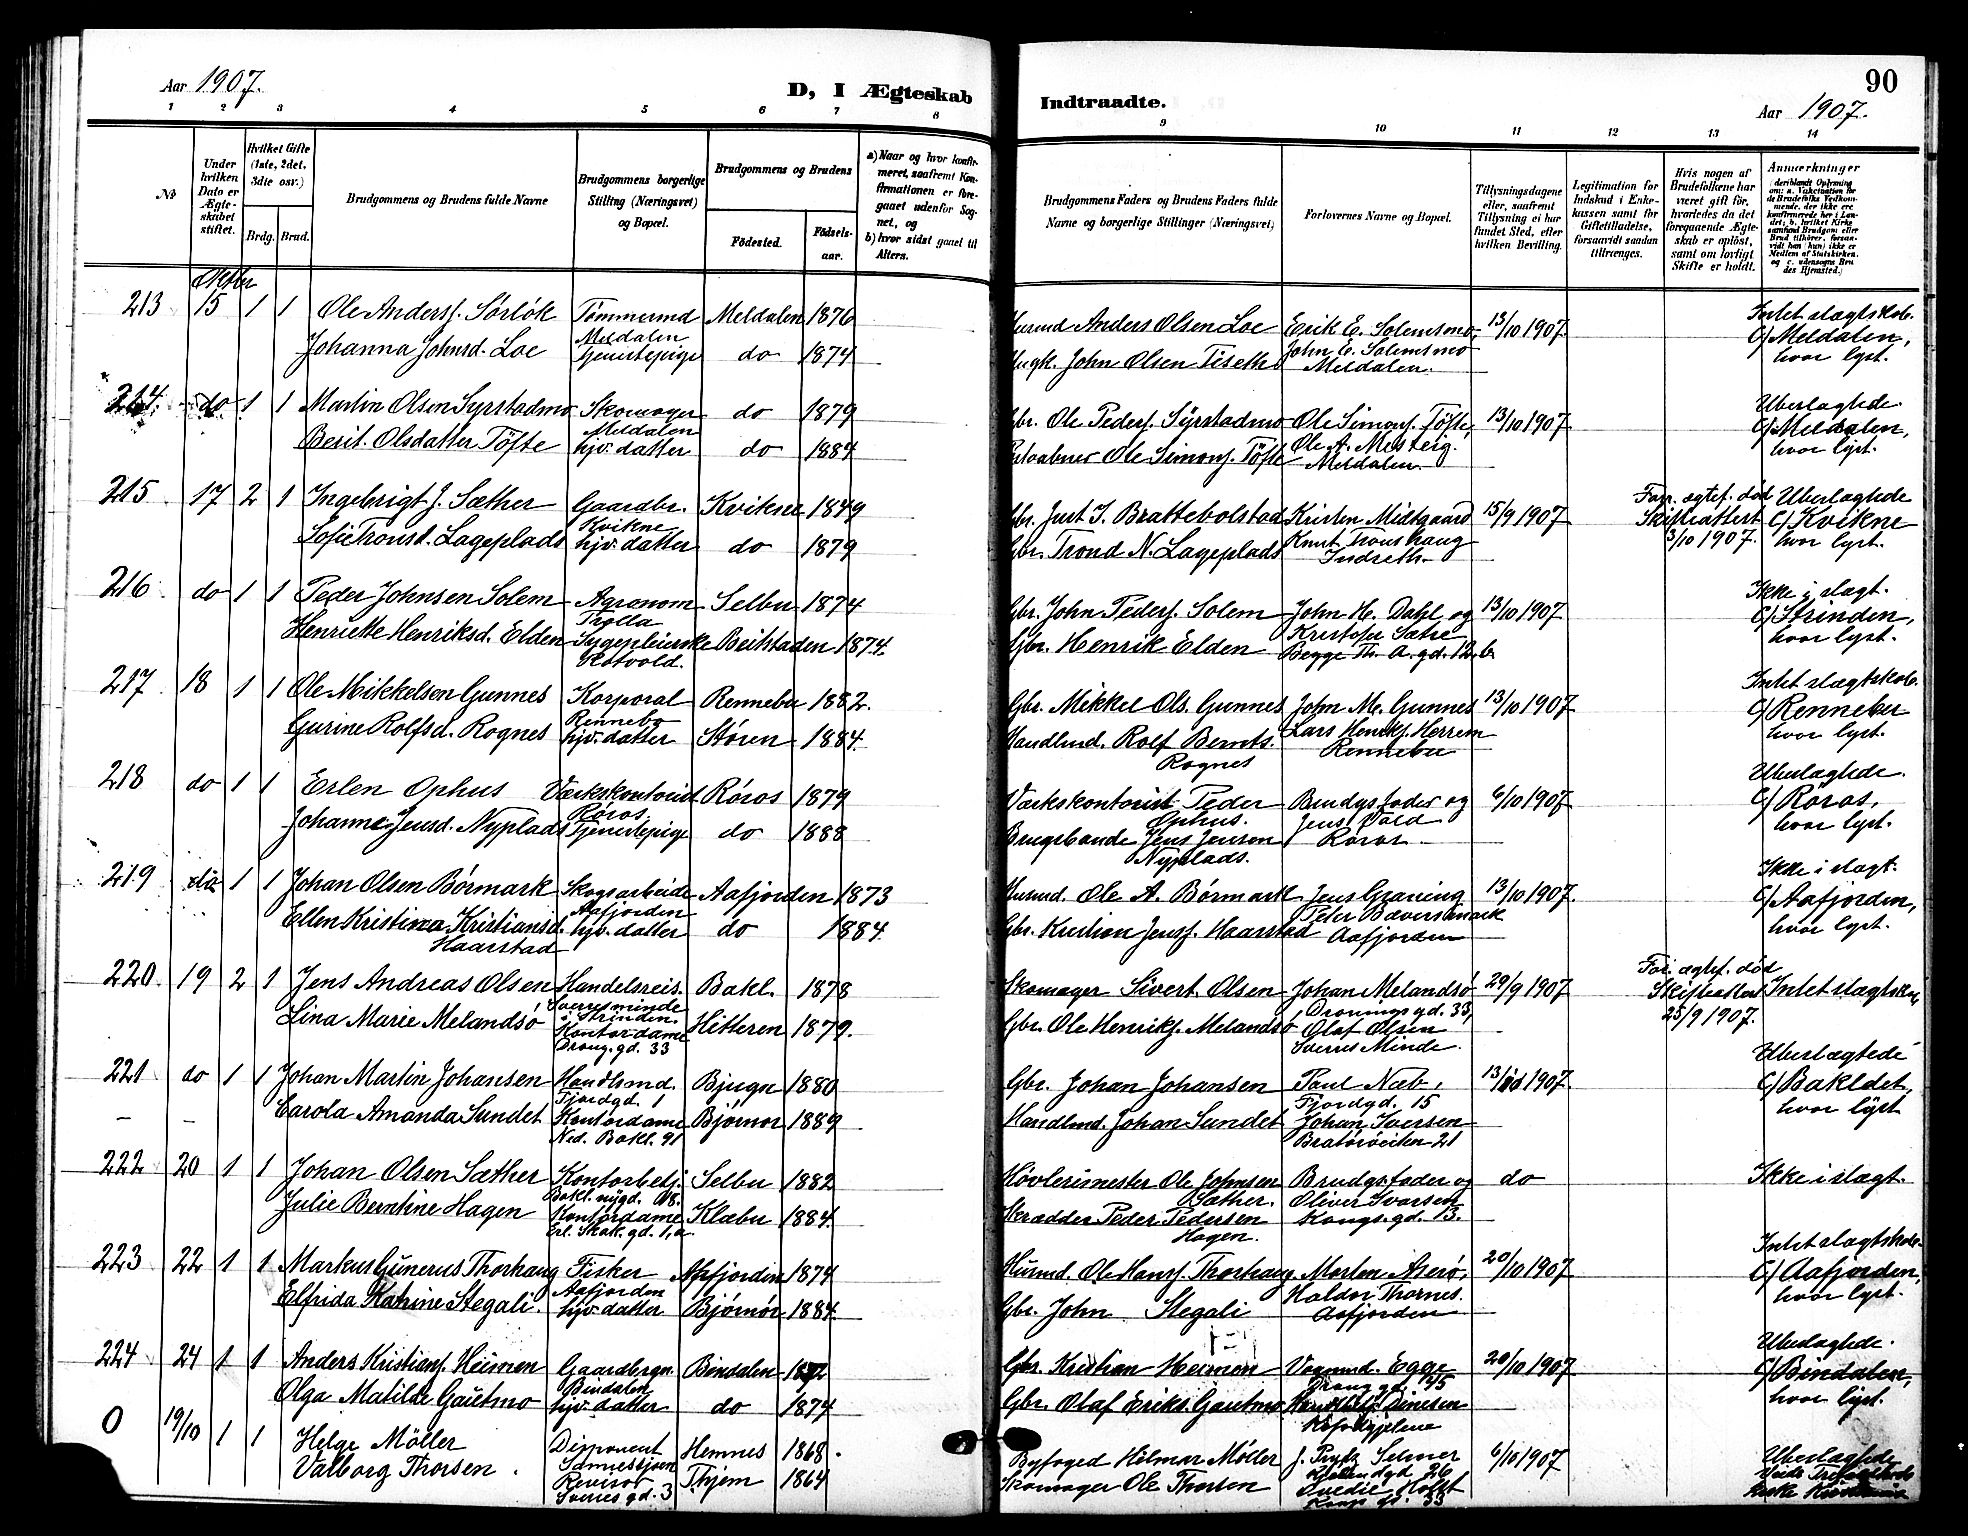 Aar 1907.
D, I Ægteskab
Indtraadte.
90
Aar 1907.
1 2 3 4 5 6 7 8
9 10 11 12 13 14
№
Under hvilken Dato er Ægteskabet stiftet.
Hvilket Gifte (1ste, 2det, 3die osv.)
Brdg. Brud.
Brudgommens og Brudens fulde Navne
Brudgommens borgerlige Stilling (Næringsvei) og Bopæl.
Brudgommens og Brudens
Fødested. Fødselsaar.
a) Naar og hvor konfirmeret, saafremt Konfirmationen er foregaaet udenfor Sognet, og
b) hvor sidst gaaet til Alters.
Brudgommens Faders og Brudens Faders fulde Navne og borgerlige Stillinger (Næringsvei)
Forlovernes Navne og Bopæl.
Tillysningsdagene eller, saafremt Tillysning ei har fundet Sted, efter hvilken Bevilling.
Legitimation for Indskud i Enkekassen samt for Giftetilladelse, forsaavidt saadan tiltrænges.
Hvis nogen af Brudefolkene har været gift før, hvorledes da det foregaaende Ægteskab er opløst, samt om lovligt Skifte er holdt.
Anmærkninger
(deriblandt Oplysning om: a. Vakcination for de Brudefolks Vedkommende, der ikke ere konfirmerede her i Landet; b. hvilket Kirkesamfund Brudgom eller Brud tilhører, forsaavidt han (hun) ikke er Medlem af Statskirken, og c. udensogns Brudes Hjemsted.)
Oktbr
213 15 1 1 Ole Andersf. Sørløk Tømmermd Meldalen 1876 Husmd Anders Olsen Loe Erik E. Solemsmo, 13/10 1907 Intet slægtskab.
Meldalen John E. Solemsmo C/ Meldalen,
Johanna Johnsd. Loe Tjenestepige do 1874 John Olsen Tiseth Meldalen. hvor lyst.
214. do 1 1 Martin Olsen Syrstadmo Skomager do 1879 Gbr. Ole Pedersf. Syrstadmo Ole Simonsf. Tøfte, 13/10 1907 Ubeslægtede.
Meldalen Ole A. Mesteig. C/ Meldalen,
Berit Olsdatter Tøfte hjv. datter do 1884 Ole Simonsf. Tøfte Meldalen. hvor lyst.
215 17 2 1 Ingebrigt J. Sæther Gaardbr. Kvikne 1849 Gbr. Just I. Brattebolstad Kristen Midtgaard 15/9 1907 Forr. ægtef. død Ubeslægtede
Kvikne Knut Tronshaug Skifteattest C/ Kvikne
Sofie Tronsd. Lageplads hjv. datter do 1879 Gbr. Trond N. Lageplads Indreth. 3/10 1907. hvor lyst.
216 do 1 1 Peder Johnsen Solem Agronom Selbu 1874 Gbr. John Pedersf. Solem John H. Dahl og 13/10 1907 Ikke i slægt.
Trolla Kristofer Sætre C/ Strinden,
Henriette Henriksd. Elden Sygepleierske Beitstaden 1874. Gbr. Henrik Elden Begge Th. A. gd. 12 b. hvor lyst.
Rotvold.
217 18 1 1 Ole Mikkelsen Gunnes Korporal Rennebu 1882. Gbr. Mikkel Ols. Gunnes John M. Gunnes 13/10 1907 Intet slægtskab.
Rennebo Lars Henrikf. Herrem C/ Rennebu
Gurine Rolfsd. Rognes hjv. datter Støren 1884. Handlmd. Rolf Bernts. Rennebu hvor lyst.
Rognes
218 do 1 1 Erlen Ophus Værkskontorist Røros 1879 Værkskontorist Peder Brudgs fader og 6/10 1907 Ubeslægtede.
Røros Ophus. Jens Vold C/ Røros,
Johanne Jensd. Nyplads Tjenestepige do 1888 Brugsbonde Jens Jenson Røros hvor lyst.
Nyplads.
219 do 1 1 Johan Olsen Børmark Skogsarbeide Aafjorden 1873 Husmd. Ole A. Børmark Jens Graning 13/10 1907. Ikke i slægt.
Aafjorden Peter Bæversmark C/ Aafjorden,
Ellen Kristina Kristiansd. hjv. datter do 1884. Gbr. Kristian Jensf. Haarstad Aafjorden hvor lyst.
Haarstad
220. 19 2 1 Jens Andreas Olsen Handelsreis. Bakl. 1878 Skomager Sivert Olsen Johan Melandsø 29/9 1907 For. ægtef. død Intet slægtsk.
Sverresminde Dronnings gd. 33, Skifteattest
i Strinden.
Lina Marie Melandsø Kontordame Hitteren 1879. Gbr. Ole Henrikf. Melandsø Olaf Olsen 25/9 1907.
Drong. gd. 33 Sverres Minde.
221 do 1 1 Johan Martin Johansen Handlmd. Bjugn 1880 Gbr. Johan Johansen Paul Næb, 13/10 1907. Ubeslægtede
Fjordgd. 1 Fjordgd. 15 C/ Bakldet,
Carola Amanda Sundet Kontordame Bjørnør 1889 Handlmd. Johan Sundet Johan Iversen hvor lyst
Ned. Bakl. 91 Bratørveiten 21
222 20 1 1 Johan Olsen Sæther Kontorbetj. Selbu 1882 Høvlerimester Ole Johnsen Brudgs fader og do Ikke i slægt.
Bakl. nygd. Sæther. Oliver Ivarsen
Julie Berntine Hagen Kontordame Klæbu 1884. Skrædder Peder Pedersen Kongs. gd. 13.
Erl. Skak. gd. 1, a Hagen.
223 22 1 1 Markus Gunerus Thorhaug Fisker Aafjorden 1874 Husmd. Ole Hansf. Thorhaug Morten Aserø, 20/10 1907 Intet slægtskab.
Aafjorden Haldor Thornes. C/ Aafjorden,
Elfrida Katrine Stegali. hjv. datter Bjørnør 1884. Gbr. John Stegali Aafjorden hvor lyst.
224 24 1 1 Anders Kristiansf. Heimen Gaardbrgn. Bindalen 1872 Gbr. Kristian Heimen Vognmd. Egge 20/10 1907 Ubeslægtede.
Bindalen Drong. gd. 45 C/ Bindalen,
Olga Matilde Gautmo hjv. datter do 1874 Gbr. Olaf Eriks. Gautmo hvor lyst.
0 19/10 1 1 Helge Möller Disponent Hemnes 1868. Byfoged Hilmar Møller J. Selmer 6/10 1907 Ubeslægtede
Valborg Thorsen. Revisor Thjem 1864 Skomager Ole Thorsen
Sverres gd. 3 Kongs gt. 33